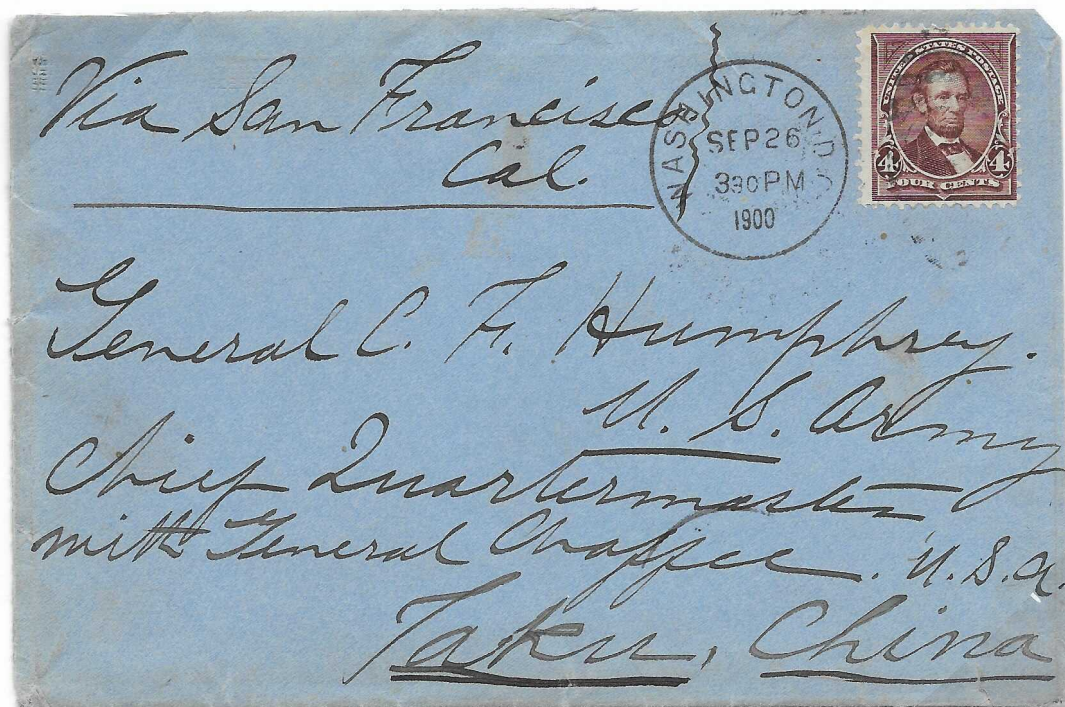 Via San Francisco
Cal.
WASHINGTON, D.C.
SEP 26
330 PM
1900
UNITED STATES POSTAGE
4 4
FOUR CENTS
General C. F. Humphrey.
U. S. Army
Chief Quartermaster
with General Chaffee. U.S.A.
Taku, China